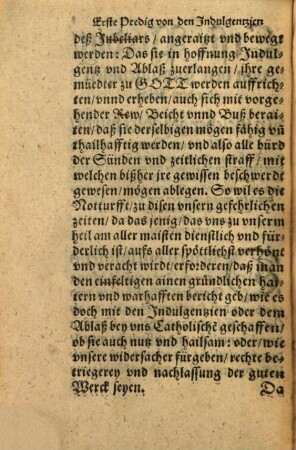 Erste Predig von den Indulgentzien
deß Jubeljars / angeraitzt vnd bewegt
werden: Das sie in hoffnung Indul-
gentz vnd Ablaß zuerlangen / jhre ge-
müedter zu GOTT werden auffrich-
ten / vnnd erheben / auch sich mit vorge-
hender Rew / Beicht vnnd Buß berai-
ten / daß sie derselbigen mögen fähig vñ
thailhafftig werden / vnd also alle bürd
der Sünden vnd zeitlichen straff / mit
welchen bißher jre gewissen beschwerdt
gewesen / mögen ablegen. So wil es die
Notturfft / zu disen vnsern gefehrlichen
zeiten / da das jenig / das vns zu vnserm
heil am aller maisten dienstlich vnd für-
derlich ist / aufs aller spöttlichst verhönt
vnd veracht wirdt / erforderen / daß man
den einfeltigen ainen gründlichen hai-
tern vnd warhafften bericht geb / wie es
doch mit den Indulgentzien oder dem
Ablaß bey vns Catholische geschaffen /
ob sie auch nutz vnd hailsam: oder / wie
vnsere widersacher fürgeben / rechte be-
triegerey vnd nachlassung der guten
Werck seyen. Da